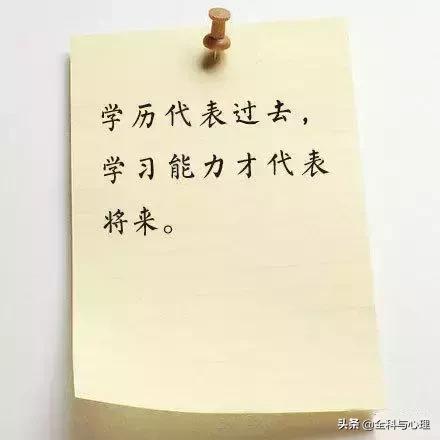 学历代表过去，
学习能力才代表
将来。
头条@全科与心理